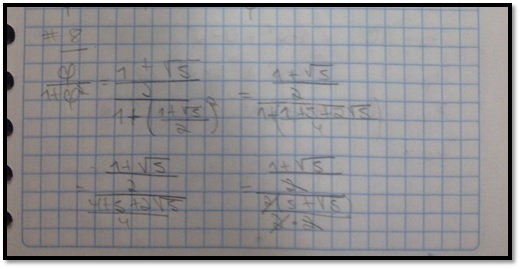 # 8
φ/(1+φ²) = ((1+√5)/2)/(1+((1+√5)/2)²) = ((1+√5)/2)/(1+(1+5+2√5)/4)
= ((1+√5)/2)/((4+5+2√5)/4) = ((1+√5)/2)/(2(5+√5)/(2·2))